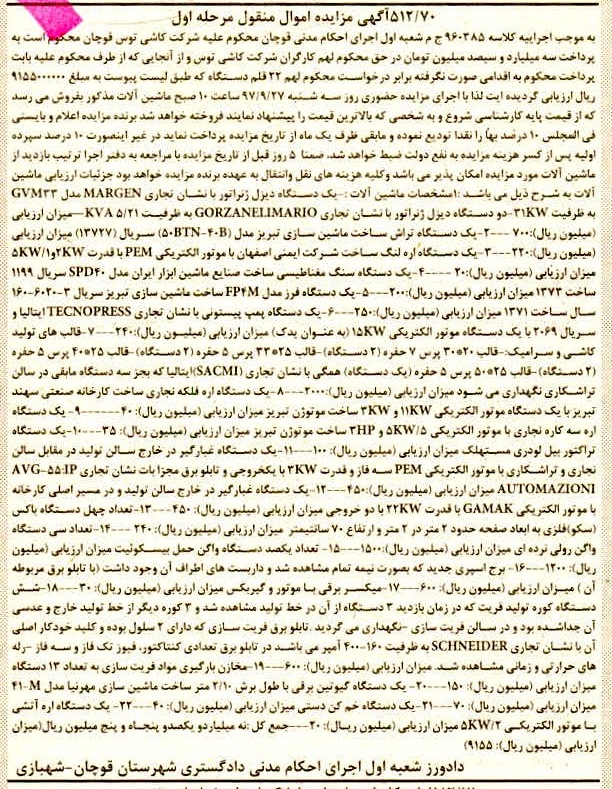 ۵۱۲/۷۰آگهی مزایده اموال منقول مرحله اول
به موجب اجراییه کلاسه ۹۶۰۳۸۵ ج م شعبه اول اجرای احکام مدنی قوچان محکوم علیه شرکت کاشی توس قوچان محکوم است به
پرداخت سه میلیارد و سیصد میلیون تومان در حق محکوم لهم کارگران شرکت کاشی توس و از آنجایی که از طرف محکوم علیه بابت
پرداخت محکوم به اقدامی صورت نگرفته برابر درخواست محکوم لهم ۲۲ قلم دستگاه که طبق لیست پیوست به مبلغ ۹۱۵۵۰۰۰۰۰۰
ریال ارزیابی گردیده ایت لذا با اجرای مزایده حضوری روز سه شنبه ۹۷/۹/۲۷ ساعت ۱۰ صبح ماشین آلات مذکور بفروش می رسد
که از قیمت پایه کارشناسی شروع و به شخصی که بالاترین قیمت را پیشنهاد نمایند فروخته خواهد شد برنده مزایده اعلام و بایستی
فی المجلس ۱۰ درصد بها را نقدا تودیع نموده و مابقی ظرف یک ماه از تاریخ مزایده پرداخت نماید در غیر اینصورت ۱۰ درصد سپرده
اولیه پس از کسر هزینه مزایده به نفع دولت ضبط خواهد شد. ضمنا ۵ روز قبل از تاریخ مزایده با مراجعه به دفتر اجرا ترتیب بازدید از
ماشین آلات مورد مزایده امکان پذیر می باشد وکلیه هزینه های نقل وانتقال به عهده برنده مزایده خواهد بود جزئیات ارزیابی ماشین
آلات به شرح ذیل می باشد :۱مشخصات ماشین آلات :-یک دستگاه دیزل ژنراتور با نشان تجاری MARGEN مدل GVM۳۳
به ظرفیت ۳۱KW-دو دستگاه دیزل ژنراتور با نشان تجاری GORZANELIMARIO به ظرفیت ۵/۲۱ KVA —میزان ارزیابی
(میلیون ریال):۷۰۰ ---۲-یک دستگاه تراش ساخت ماشین سازی تبریز مدل (۵۰BTN-۴۰B) سریال (۱۳۷۲۷) میزان ارزیابی
(میلیون ریال):۲۲۰---۳-یک دستگاه اره لنگ ساخت شرکت ایمنی اصفهان با موتور الکتریکی PEM با قدرت ۲KWو۵KW/۱
میزان ارزیابی (میلیون ریال):۲۰ ----۴-یک دستگاه سنگ مغناطیسی ساخت صنایع ماشین ابزار ایران مدل SPD۴۰ سریال ۱۱۹۹
ساخت ۱۳۷۳ میزان ارزیابی (میلیون ریال):۲۰۰---۵-یک دستگاه فرز مدل FP۴M ساخت ماشین سازی تبریز سریال ۳-۶۰۲۰-۱۶۰
سال ساخت ۱۳۷۱ میزان ارزیابی (میلیون ریال):۲۵۰---۶-یک دستگاه پمپ پیستونی با نشان تجاری TECNOPRESS ایتالیا و
سریال ۲۰۶۹ با یک دستگاه موتور الکتریکی ۱۵KW (به عنوان یدک) میزان ارزیابی (میلیون ریال):۲۴۰---۷-قالب های تولید
کاشی و سرامیک:-قالب ۲۰*۳۰ پرس ۷ حفره (۲ دستگاه) -قالب ۲۵*۳۳ پرس ۵ حفره (۲ دستگاه)-قالب ۲۵*۴۰ پرس ۵ حفره
(۲ دستگاه) -قالب ۲۵*۵۰ پرس ۵ حفره (یک دستگاه) همگی با نشان تجاری (SACMI) ایتالیا که بجز سه دستگاه مابقی در سالن
تراشکاری نگهداری می شود میزان ارزیابی (میلیون ریال):۲۰۰۰---۸-یک دستگاه اره فلکه نجاری ساخت کارخانه صنعتی سهند
تبریز با یک دستگاه موتور الکتریکی ۱۱KW و ۳KW ساخت موتوژن تبریز میزان ارزیابی (میلیون ریال): ۴۰------۹-یک دستگاه
اره سه کاره نجاری با موتور الکتریکی ۵KW/۵ و ۳HP ساخت موتوژن تبریز میزان ارزیابی (میلیون ریال): ۳۵---۱۰-یک دستگاه
تراکتور بیل لودری مستهلک میزان ارزیابی (میلیون ریال): ۱۰۰---۱۱-یک دستگاه غبارگیر در خارج سالن تولید در مقابل سالن
نجاری و تراشکاری با موتور الکتریکی PEM سه فاز و قدرت ۳KW با یکخروجی و تابلو برق مجزا بات نشان تجاری AVG-۵۵:IP
AUTOMAZIONI میزان ارزیابی (میلیون ریال):۴۵۰---۱۲-یک دستگاه غبارگیر در خارج سالن تولید و در مسیر اصلی کارخانه
با موتور الکتریکی GAMAK با قدرت ۲۲KW با دو خروجی میزان ارزیابی (میلیون ریال): ۴۵۰---۱۳-تعداد چهل دستگاه باکس
(سکو)فلزی به ابعاد صفحه حدود ۲ متر در ۲ متر و ارتفاع ۷۰ سانتیمتر میزان ارزیابی (میلیون ریال): ۲۴۰ ---۱۴-تعداد سی دستگاه
واگن رولی نرده ای میزان ارزیابی (میلیون ریال):۱۵۰۰---۱۵- تعداد یکصد دستگاه واگن حمل بیسکوئیت میزان ارزیابی (میلیون
ریال): ۱۲۰۰---۱۶- برج اسپری جدید که بصورت نیمه تمام مشاهده شد و داربست های اطراف آن وجود داشت (با تابلو برق مربوطه
آن ) میزان ارزیابی (میلیون ریال): ۶۰۰---۱۷-میکسر برقی با موتور و گیربکس میزان ارزیابی (میلیون ریال): ۳۰---۱۸-شش
دستگاه کوره تولید فریت که در زمان بازدید ۳ دستگاه از آن در خط تولید مشاهده شد و ۳ کوره دیگر از خط تولید خارج و عدسی
آن جداشده بود و در سالن فریت سازی -نگهداری می گردید .تابلو برق فریت سازی که دارای ۲ سلول بوده و کلید خودکار اصلی
آن با نشان تجاری SCHNEIDER به ظرفیت ۱۶۰-۴۰۰ آمپر می باشد در تابلو برق تعدادی کنتاکتور، فیوز تک فاز و سه فاز -رله
های حرارتی و زمانی مشاهده شد. میزان ارزیابی (میلیون ریال):۶۰۰---۱۹-مخازن بارگیری مواد فریت سازی به تعداد ۱۳ دستگاه
میزان ارزیابی (میلیون ریال): ۱۵۰---۲۰-یک دستگاه گیوتین برقی با طول برش ۲/۱۰ متر ساخت ماشین سازی مهرنیا مدل ۴۱-M
میزان ارزیابی (میلیون ریال): ۷۰---۲۱-یک دستگاه خم کن دستی میزان ارزیابی (میلیون ریال): ۴۰---۲۲-یک دستگاه اره آتشی
با موتور الکتریکی ۵KW/۲ میزان ارزیابی (میلیون ریال):۲۰---جمع کل :نه میلیاردو یکصدو پنجاه و پنج میلیون ریال(میزان
ارزیابی (میلیون ریال): ۹۱۵۵)
دادورز شعبه اول اجرای احکام مدنی دادگستری شهرستان قوچان-شهبازی